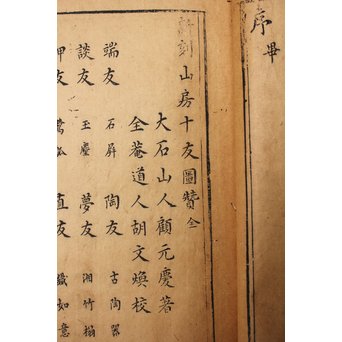 序畢
新刻山房十友圖贊全
大石山人顧元慶著
全菴道人胡文煥校
端友 石屏 陶友 古陶器
談友 玉麈 夢友 湘竹榻
直友 鐵如意